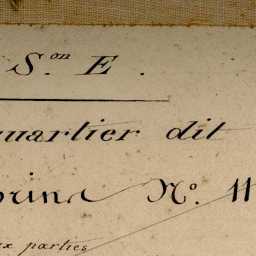 S.on E.
quartier dit
orine No. 11
ux parties